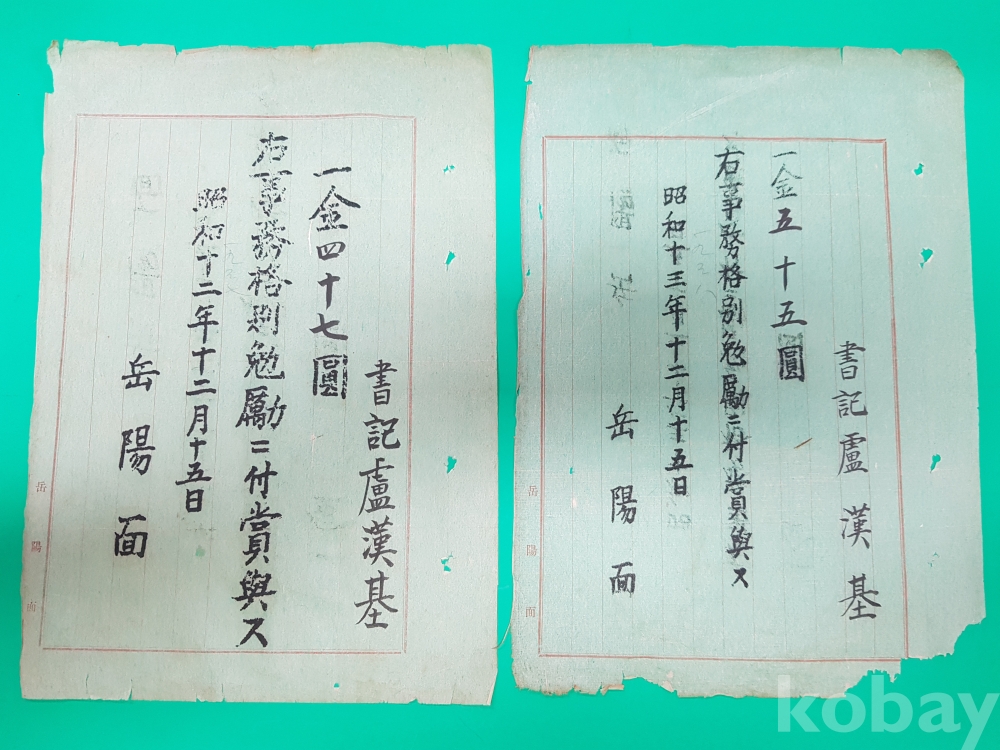 書記盧漢基
一金四十七圓
右事務格別勉勵ニ付賞與ス
昭和十二年十二月十五日
岳陽面
岳陽面
書記盧漢基
一金五十五圓
右事務格別勉勵ニ付賞與ス
昭和十三年十二月十五日
岳陽面
岳陽面
kobay